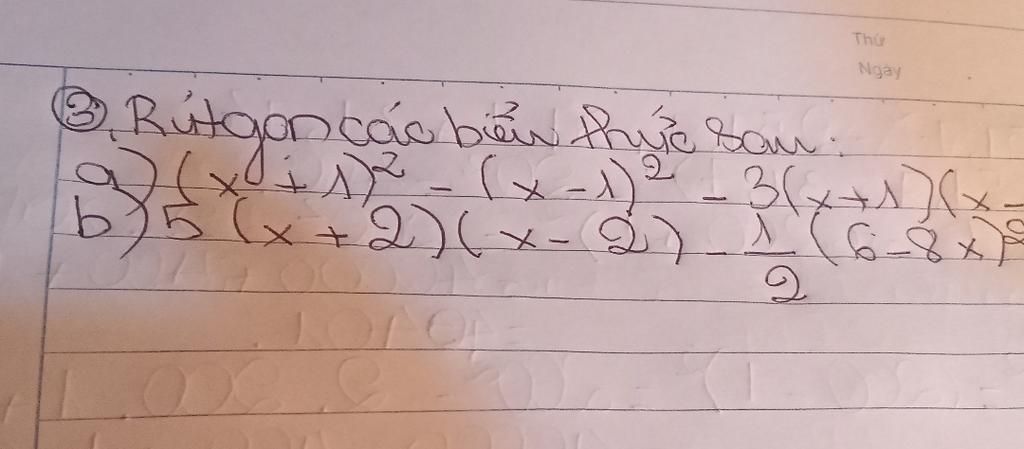 Thứ
Ngày
③. Rút gọn các biểu thức sau:
a) (x + 1)² - (x - 1)² - 3(x + 1)(x -
b) 5 (x + 2)(x - 2) - 1/2 (6 - 8x)²